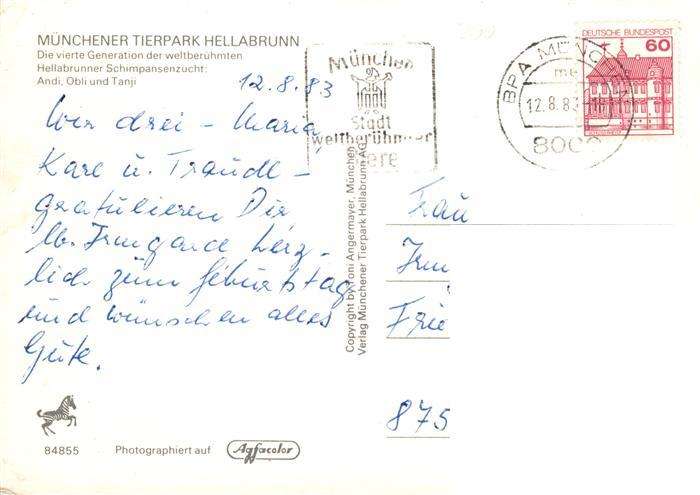 MÜNCHENER TIERPARK HELLABRUNN
Die vierte Generation der weltberühmten
Hellabrunner Schimpansenzucht:
Andi, Obli und Tanji
12.8.83
Wir drei – Maria,
Karl u. Traudl –
gratulieren Dir
lb. Irmgard herz-
lich zum Geburtstag
und wünschen alles
Gute.
84855
Photographiert auf
Agfacolor
Copyright by Toni Angermayer, München
Verlag Münchener Tierpark Hellabrunn AG
München
Stadt
weltberühmter
DEUTSCHE BUNDESPOST
60
BPA MÜNCHEN
12.8.83
8000
Frau
Irm
Frie
875